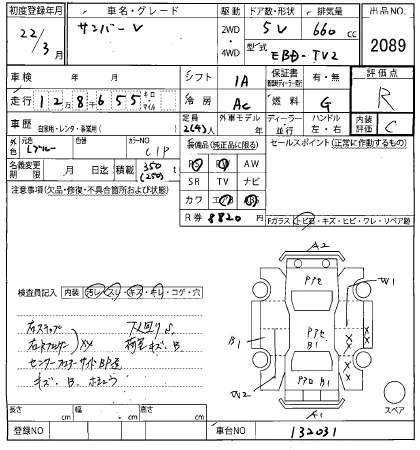 初度登録年月 車名・グレード 駆動 ドア数・形状 排気量 出品NO.
22/3月 サンバー V 2WD・4WD 5V 660cc 2089
型式 EBD-TV2
車検 年 月 シフト IA 保証書 有・無 評価点
走行 12万8千655 キロ マイル 冷房 AC 燃料 G R
車歴 自家用・レンタ・事業用( ) 定員 2(4)人 外車モデル ディーラー・並行 ハンドル 左・右 内装評価 C
外色 元色 Lブルー 色替 カラーNO C1P 装備品(純正品に限る) セールスポイント(正常に作動するもの)
PS PW AW
名義変更期限 月 日迄 積載 350(250)kg SR TV ナビ
注意事項(欠品・修復・不具合箇所および状態) カワ
R券 8820円
Fガラス(トビ石・キズ・ヒビ・ワレ・リペア跡
検査員記入 内装(汚レ・スレ・キズ・キレ・コゲ・穴
右ステップ 下廻りS.
右リアフェンダー XX 荷室キズ.B.
センターフロアーサイドBP追
キズ.B.ホショウ
A2
P7セ
W1
B1
P7セ
B1
X
X
X
X
W2
P7ロ B1
A1
スペア
長さ cm 幅 cm 高さ cm
登録NO 車台NO 132031